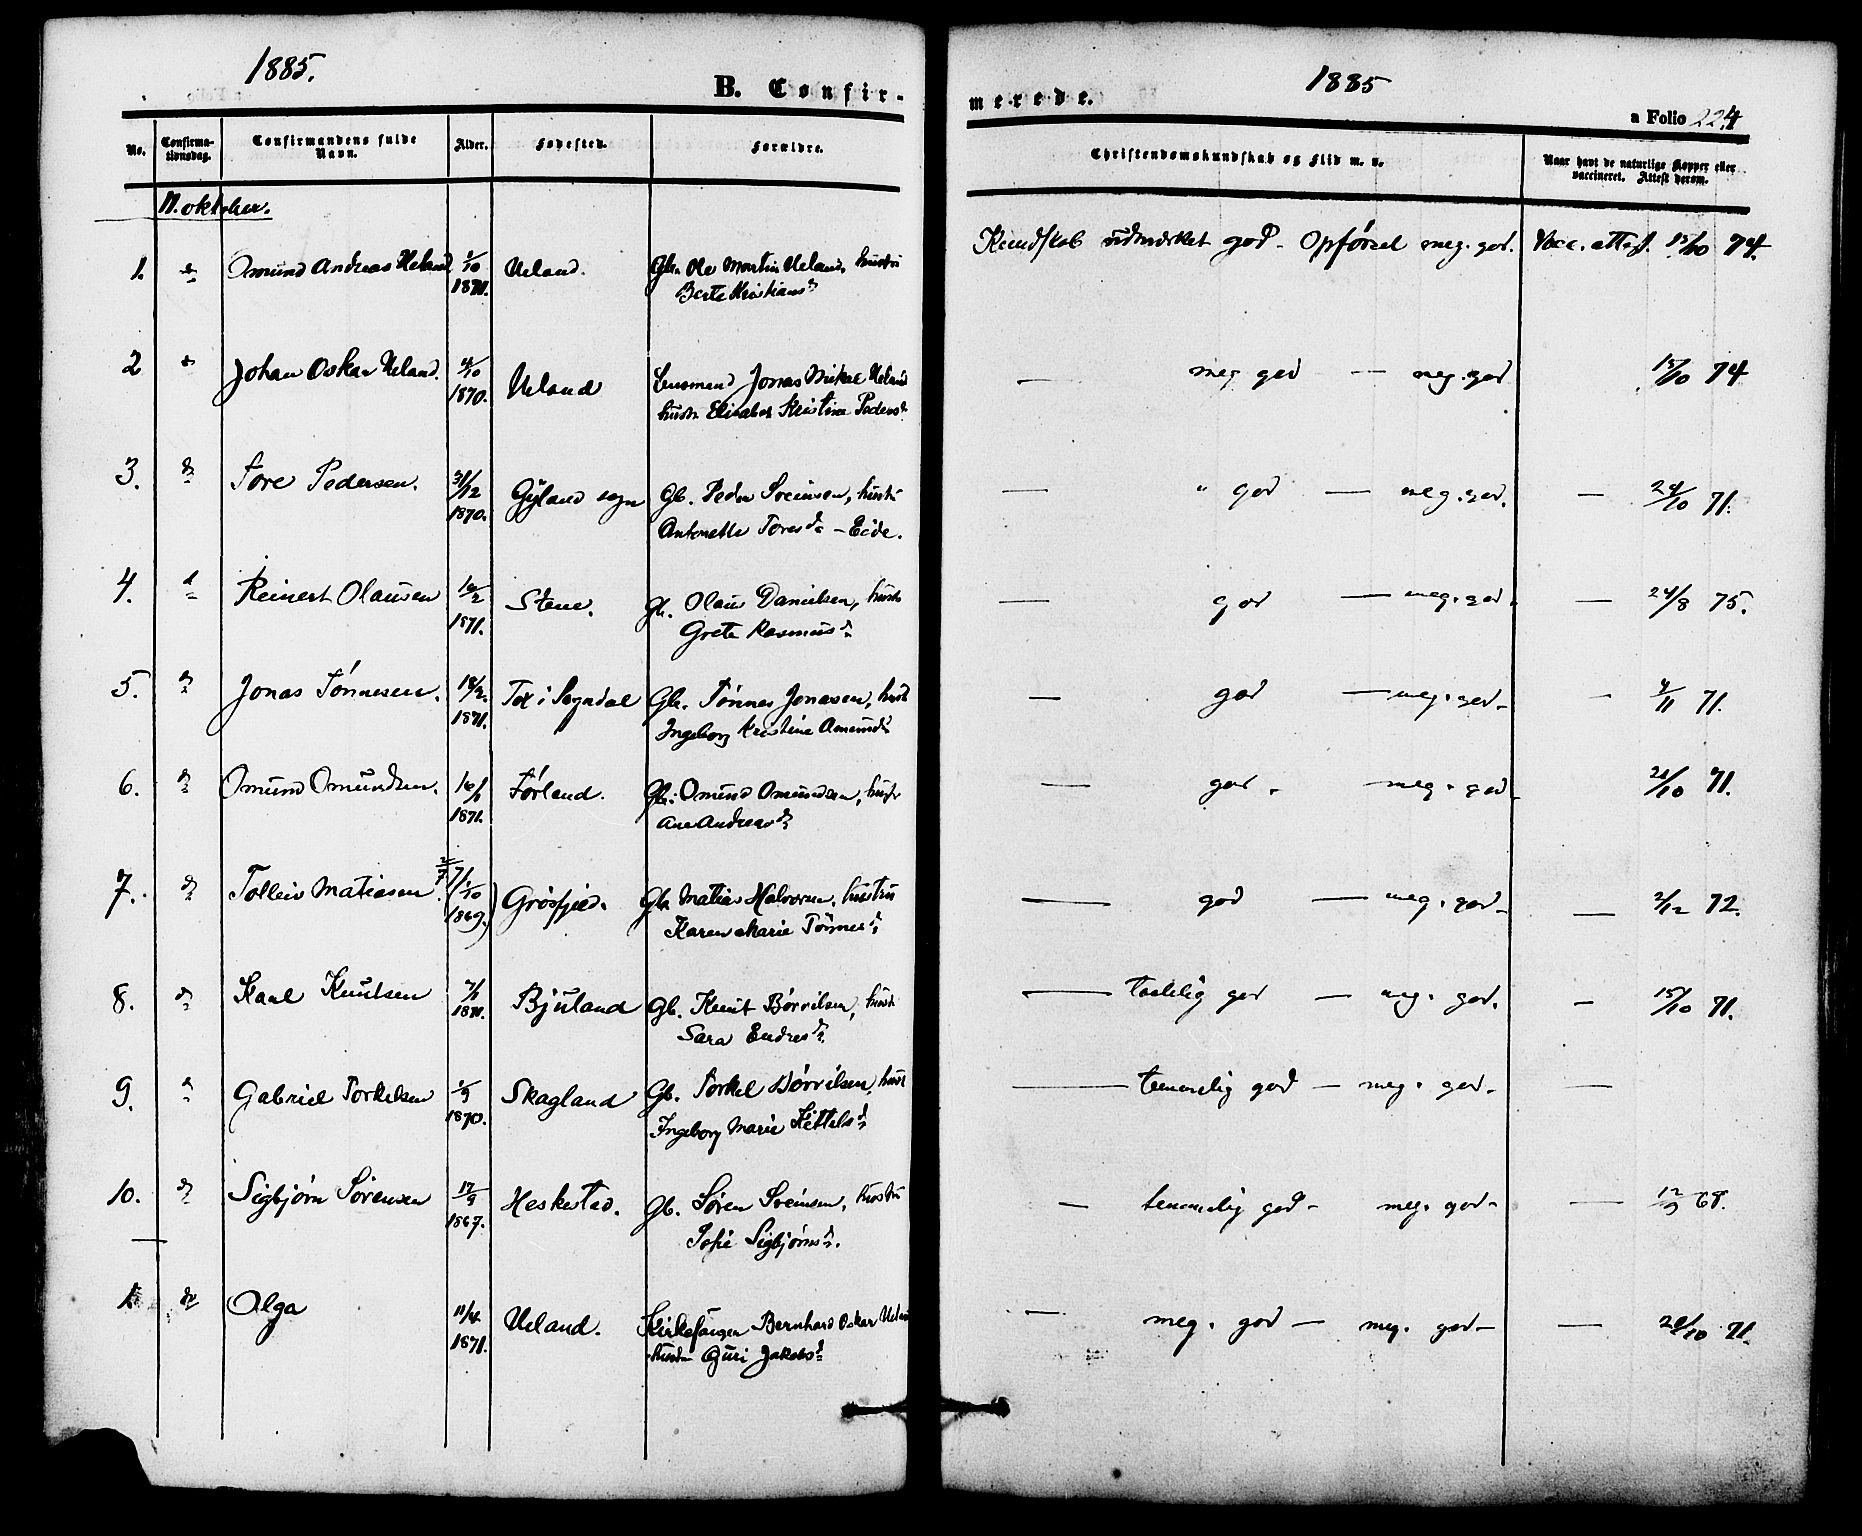 1885.
B. Confir-
No.
Confirma-
tionsdag.
Confirmandens fulde
Navn.
Alder.
Fødested.
Forældre.
11. oktober.
1. do Omund Andreas Ueland 1/10 Ueland. Gbr. Ole Martin Ueland, hustru
1870. Berte Kristians dr
2 do Johan Oskar Ueland. 4/10 Ueland Lensmand Jonas Mikal Ueland
1870. hustr. Elisabet Kristine Peders dr
3. do Tore Pedersen. 31/12 Gyland sogn Gb. Peder Sveinsen, hustr
1870. Antonette Tores dr - Eide.
4. do Reinert Olausen 16/2 Stene. Gb. Olaus Danielsen, hustr
1871. Grete Rasmus dr
5. do Jonas Tønnesen. 18/2 Tox i Sogndal Gb. Tønnes Jonasen, hust
1871. Ingeborg Kristine Omunds dr
6. do Omund Omundsen. 16/1 Førland. Gb. Omund Omundsen, hustr
1871. Ane Andreas dr
7. do Tolleiv Matiasen 1/10 Grøsfjeld. Gb. Matias Halvorsen, hustru
1869. Karen Marie Tønnes dr
8. do Karl Knutsen 7/1 Bjuland Gb. Knut Børrilsen, hust
1871. Sara Endres dr
9. do Gabriel Torkelsen 1/9 Skagland Gb. Torkel Børrilsen, hust
1870. Ingeborg Marie Kittels dr
10. do Sigbjørn Sørensen 17/9 Heskestad. Gb. Søren Sveinsen, hustru
1867. Sofie Sigbjørns dr.
1. do Olga 11/4 Ueland. Kirkesanger Bernhard Oskar Ueland
1871. hustr Guri Jakobs dr
1885
merede.
a Folio 224
Christendomskundskab og Flid m. v.
Naar havt de naturlige Kopper eller
vaccineret. Attest derom.
Kundskab udmærket god - Opførsel meg. god. Vacc. attest. 15/10 74.
— meg god — meg. god 15/10 74
— " god — meg. god. — 24/10 71.
— god — meg. god. — 24/8 75.
— god — meg. god - — 4/11 71.
— god. meg. god - 21/10 71.
— god — meg. god - — 2/12 72.
— taalelig god — meg. god. — 15/10 71.
— temmelig god — meg. god - —
— temmelig god - meg. god - — 12/9 68.
— meg. god — meg. god - — 21/10 71.